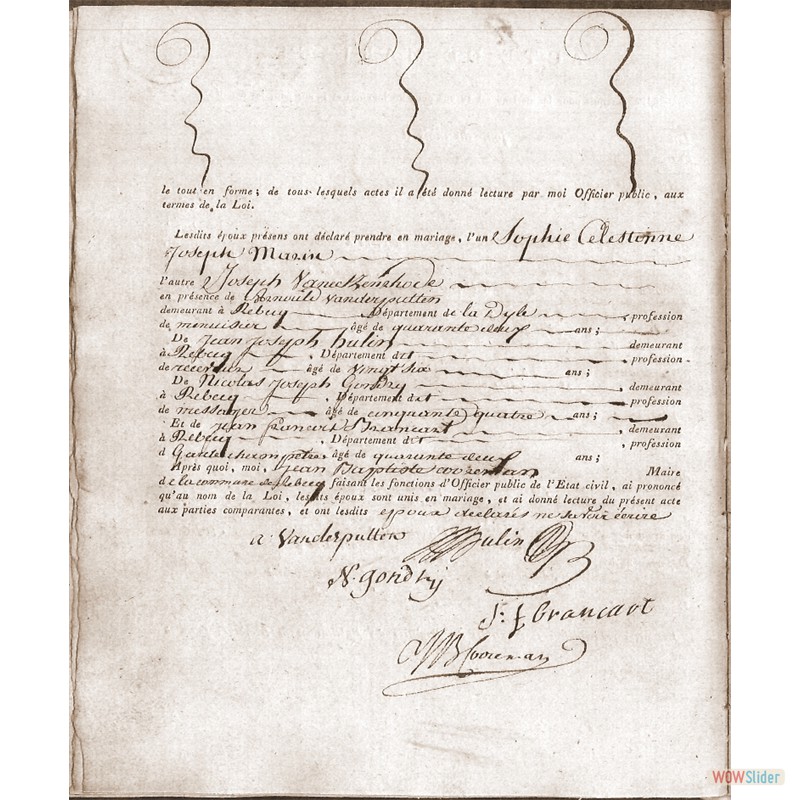 le tout en forme ; de tous lesquels actes il a été donné lecture par moi Officier public, aux
termes de la Loi.
Lesdits époux présens ont déclaré prendre en mariage, l'un Sophie Celestinne
Joseph Marin
l'autre Joseph
en présence de Arnould Vanderputten
demeurant à Rebecq Département de la Dyle profession
de menuisier âgé de quarante deux ans ;
De Jean Joseph hulin demeurant
à Rebecq , Département dit profession
de receveur âgé de vingt six ans ;
De Nicolas Joseph Gondry , demeurant
à Rebecq , Département dit , profession
de messager âgé de cinquante quatre ans ;
Et de jean francois Brancart , demeurant
à Rebecq , Département dit , profession
d Gardechampetre âgé de quarante deux ans ;
Après quoi, moi, jean Baptiste cooreman Maire
de la commune de Rebecq faisant les fonctions d'Officier public de l'Etat civil, ai prononcé
qu'au nom de la Loi, lesdits époux sont unis en mariage, et ai donné lecture du présent acte
aux parties comparantes, et ont lesdits epoux declarés ne savoir écrire
a Vanderputten
hulin
N. gondry
J: f brancart
JB Cooreman
WOWSlider